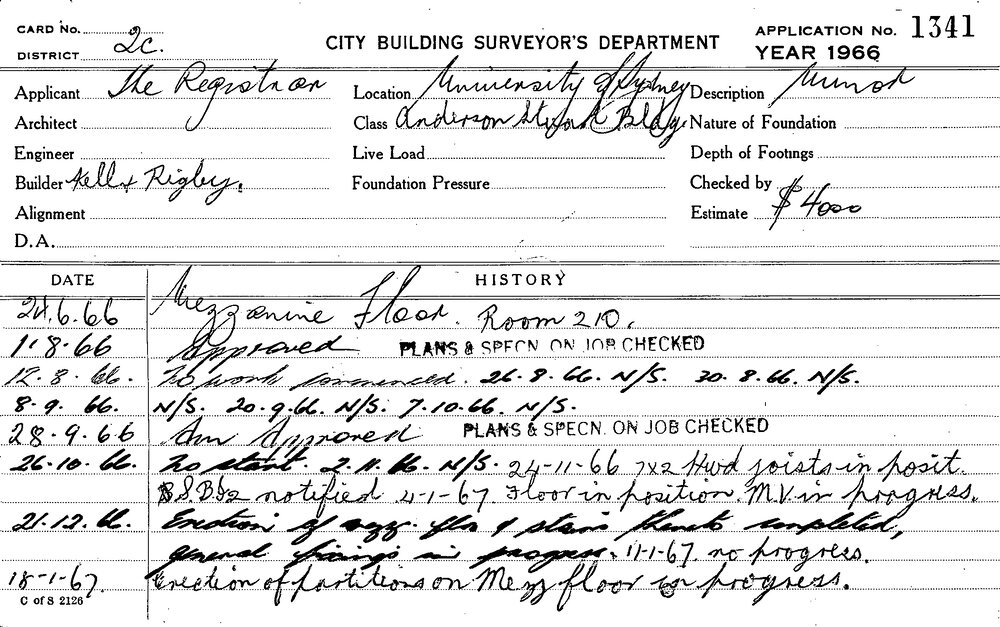 CARD No.
DISTRICT 2c.
CITY BUILDING SURVEYOR'S DEPARTMENT
APPLICATION No. 1341
YEAR 1966
Applicant The Registrar
Location University of Sydney
Description Minor
Architect
Class Anderson Stuart Bldg.
Nature of Foundation
Engineer
Live Load
Depth of Footings
Builder Kell & Rigby.
Foundation Pressure
Checked by
Alignment
Estimate $4000
D.A.
DATE HISTORY
24.6.66 Mezzanine Floor. Room 210.
1.8.66 Approved PLANS & SPECN. ON JOB CHECKED
12.8.66. No work commenced. 26.8.66. N/S. 30.8.66. N/S.
8.9.66. N/S. 20.9.66. N/S. 7.10.66. N/S.
28.9.66 Am Approved PLANS & SPECN. ON JOB CHECKED
26.10.66. No start. 2.11.66. N/S. 24-11-66 7x2 Hwd joists in posit.
notified 4-1-67. Floor in position. M.V. in progress.
21.12.66. Erection of mezz. flr & stairs thereto completed,
general fixings in progress. 11-1-67. no progress.
18-1-67. Erection of partitions on Mezz floor in progress.
C of S 2126